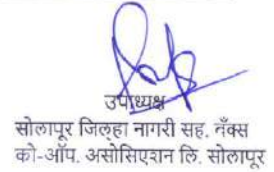 उपाध्यक्ष
सोलापूर जिल्हा नागरी सह. बँक्स
को-ऑप. असोसिएशन लि. सोलापूर